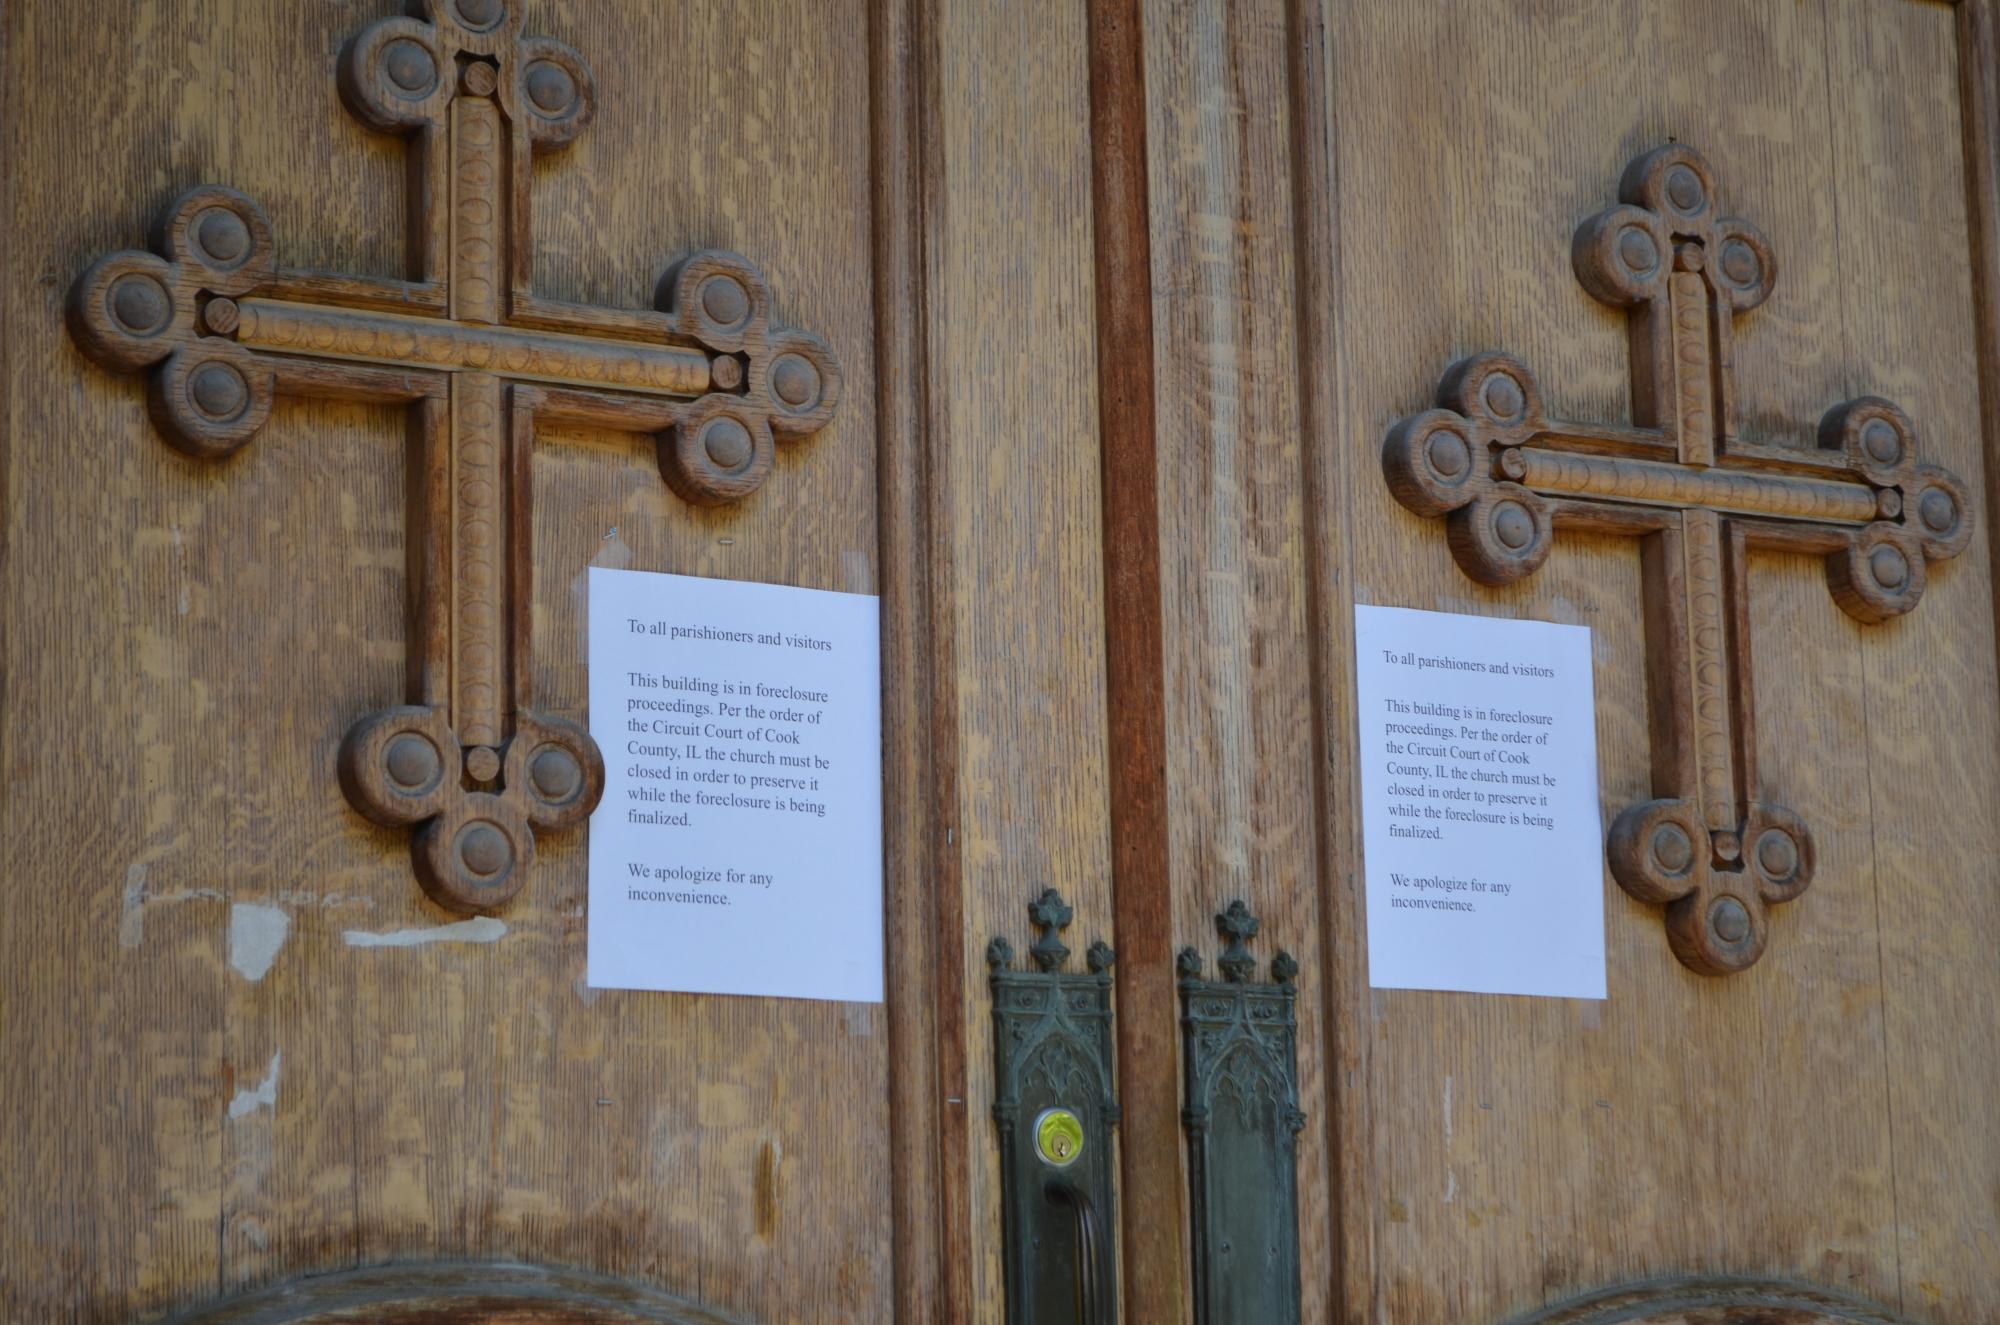 To all parishioners and visitors
This building is in foreclosure
proceedings. Per the order of
the Circuit Court of Cook
County, IL the church must be
closed in order to preserve it
while the foreclosure is being
finalized.
We apologize for any
inconvenience.
To all parishioners and visitors
This building is in foreclosure
proceedings. Per the order of
the Circuit Court of Cook
County, IL the church must be
closed in order to preserve it
while the foreclosure is being
finalized.
We apologize for any
inconvenience.